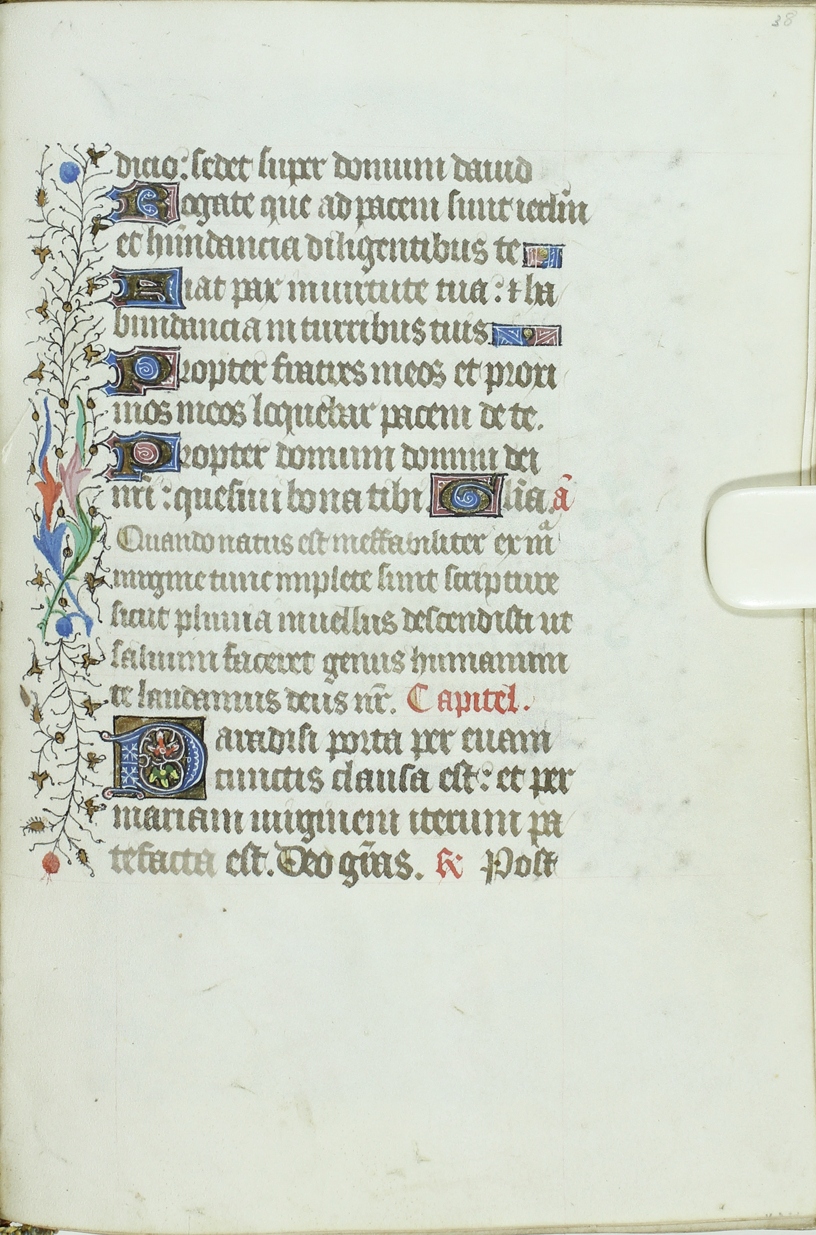 38
dicio: sedet super domum dauid
Rogate que ad pacem sunt ierlm̄
et hundancia diligentibus te
Fiat pax in uirtute tua: ⁊ ha
bundancia in turribus tuis
Propter fratres meos et proxi
mos meos loquebar pacem de te.
Propter domum domini dei
nr̄i: quesiui bona tibi Gl̄ia. ā
Quando natus est ineffabiliter ex uı̄
uirgine tunc implete sunt scripture
sicut pluuia in uellus descendisti ut
saluum faceret genus humanum
te laudamus deus nr̄. Capitel.
Paradisi porta per euam
cunctis clausa est: et per
mariam uirginem iterum pa
tefacta est. Deo gr̄as. ℟ Post